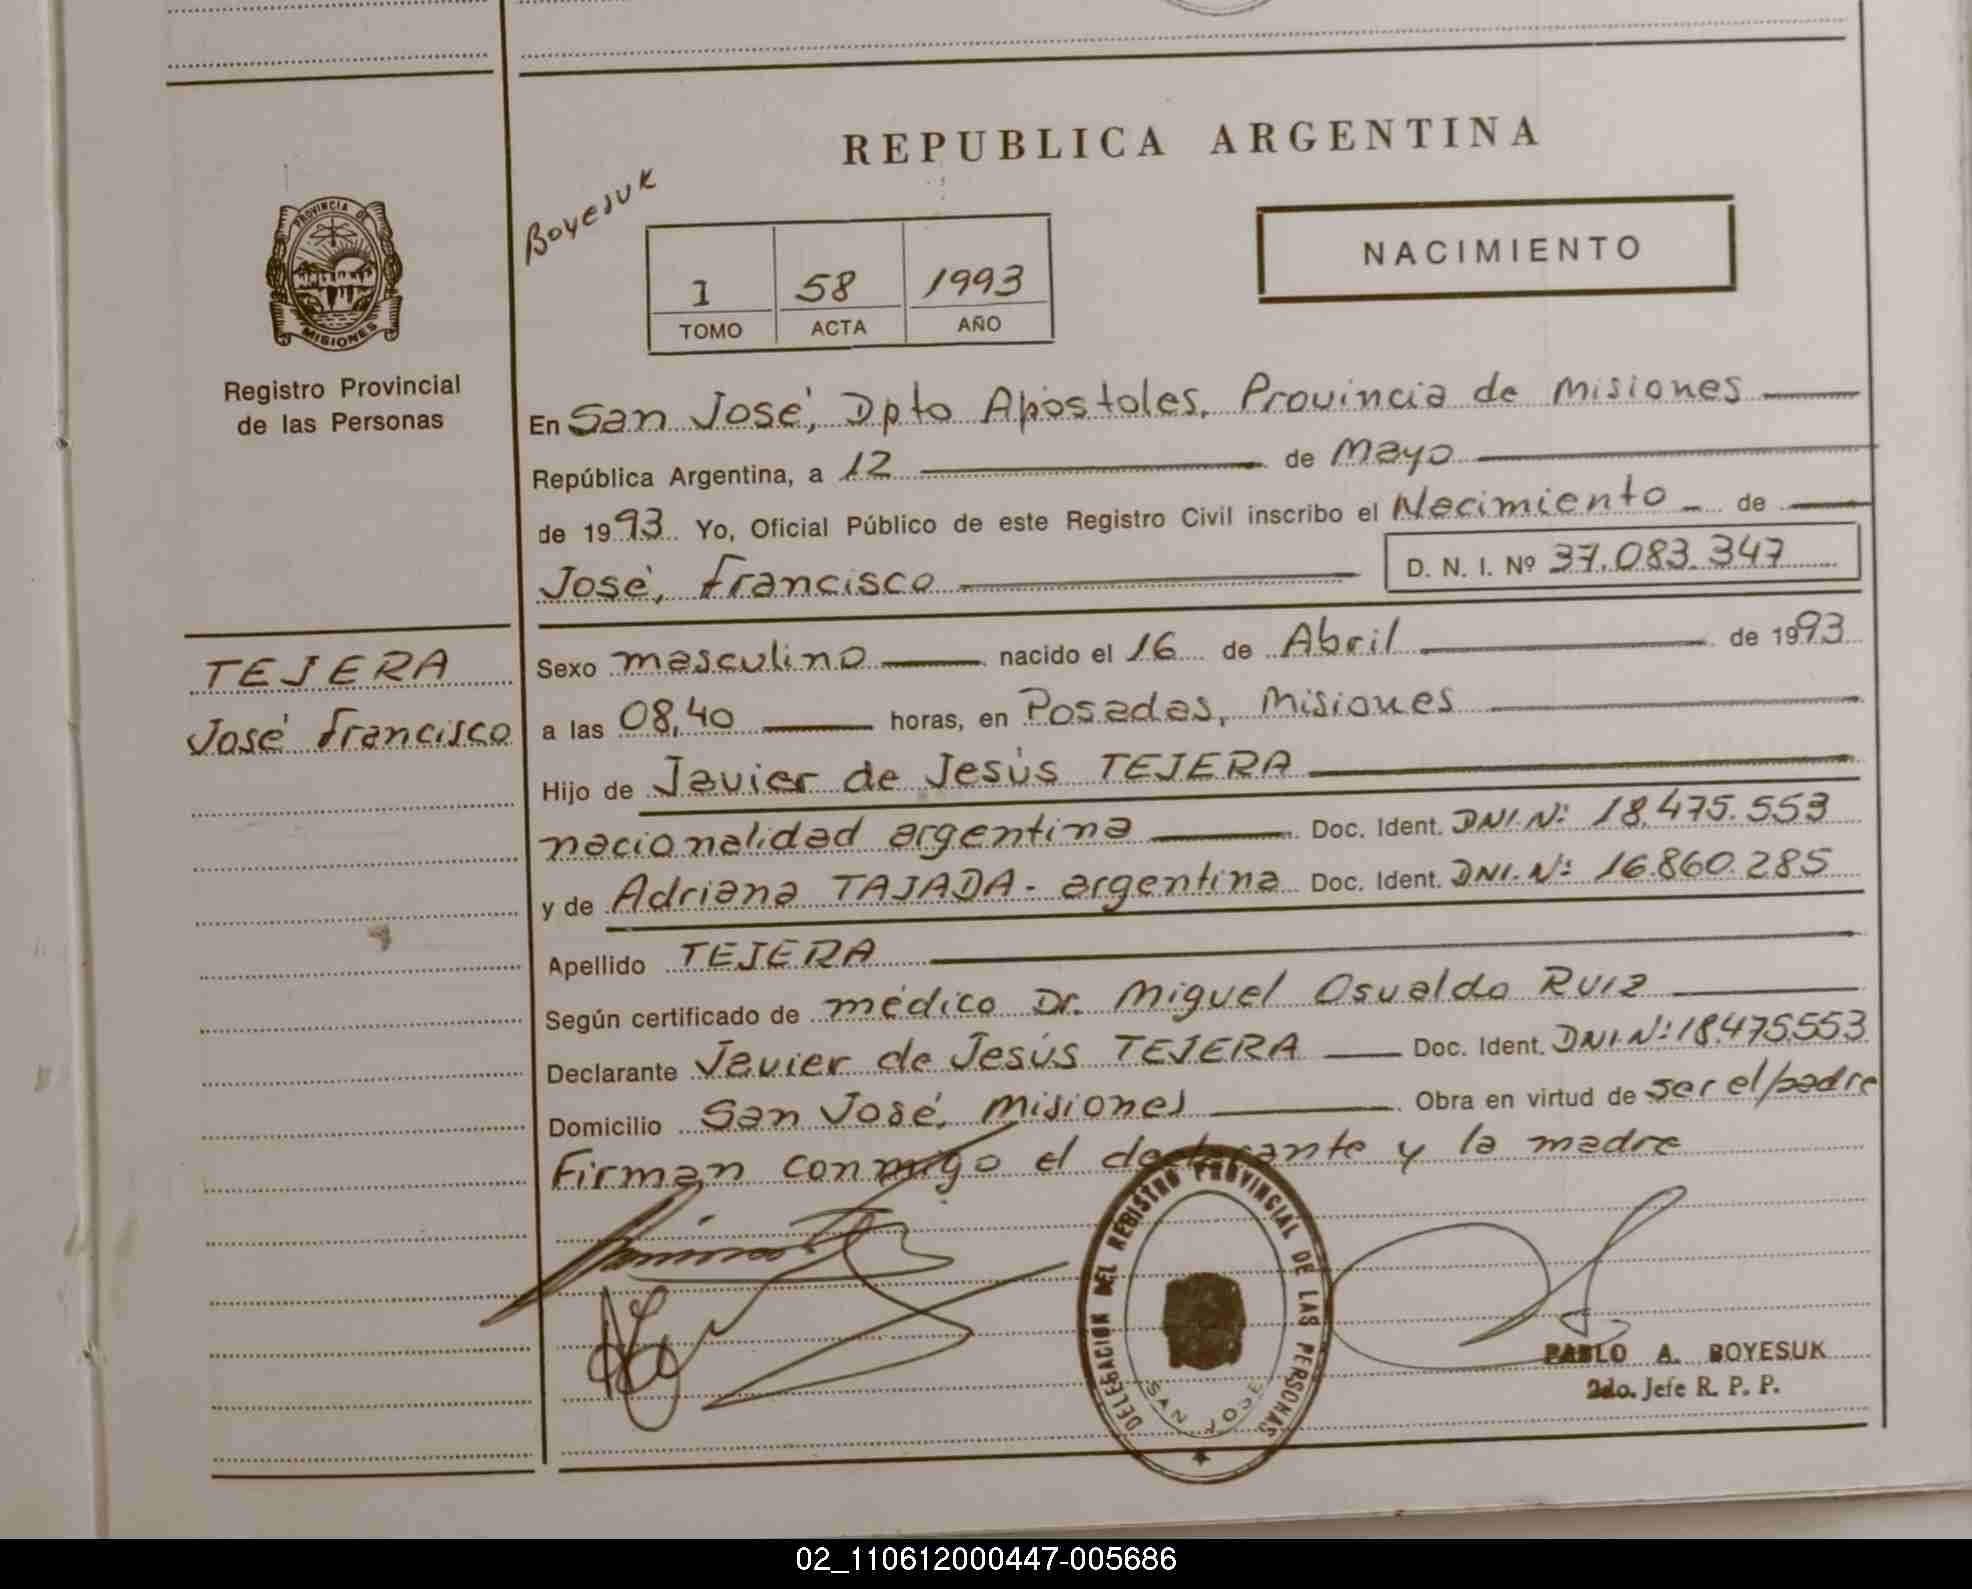 REPUBLICA ARGENTINA
Boyesuk
NACIMIENTO
1 58 1993
TOMO ACTA AÑO
PROVINCIA DE
MISIONES
Registro Provincial
de las Personas
En San José, Dpto Apóstoles, Provincia de Misiones
República Argentina, a 12 de Mayo
de 1993 Yo, Oficial Público de este Registro Civil inscribo el Nacimiento de
José, Francisco D. N. I. Nº 37.083.347
TEJERA
José Francisco
Sexo masculino nacido el 16 de Abril de 1993
a las 08,40 horas, en Posadas, Misiones
Hijo de Javier de Jesús TEJERA
nacionalidad argentina Doc. Ident. DNI.Nº: 18.475.553
y de Adriana TAJADA - argentina Doc. Ident. DNI.Nº: 16.860.285
Apellido TEJERA
Según certificado de médico Dr. Miguel Osvaldo Ruiz
Declarante Javier de Jesús TEJERA Doc. Ident. DNI.Nº: 18.475553
Domicilio San José, Misiones Obra en virtud de ser el padre
Firman conmigo el declarante y la madre
DELEGACION DEL REGISTRO PROVINCIAL DE LAS PERSONAS
SAN JOSE
PABLO A. BOYESUK
2do. Jefe R. P. P.
02_110612000447-005686